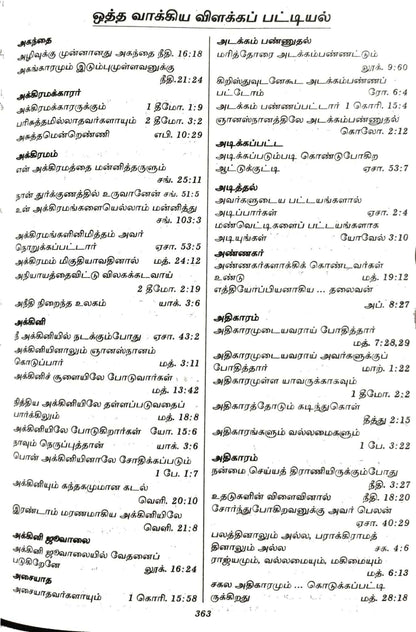 ஒத்த வாக்கிய விளக்கப் பட்டியல்
அகந்தை
அழிவுக்கு முன்னானது அகந்தை நீதி. 16:18
அகங்காரமும் இடும்புமுள்ளவனுக்கு
நீதி.21:24
அக்கிரமக்காரர்
அக்கிரமக்காரருக்கும் 1 தீமோ. 1:9
பரிசுத்தமில்லாதவர்களாயும் 2 தீமோ. 3:2
அசுத்தமென்றெண்ணி எபி. 10:29
அக்கிரமம்
என் அக்கிரமத்தை மன்னித்தருளும்
சங். 25:11
நான் துர்க்குணத்தில் உருவானேன் சங். 51:5
உன் அக்கிரமங்களையெல்லாம் மன்னித்து
சங். 103:3
அக்கிரமங்களினிமித்தம் அவர்
நொறுக்கப்பட்டார் ஏசா. 53:5
அக்கிரமம் மிகுதியாவதினால் மத். 24:12
அநியாயத்தைவிட்டு விலகக்கடவாய்
2 தீமோ. 2:19
அநீதி நிறைந்த உலகம் யாக். 3:6
அக்கினி
நீ அக்கினியில் நடக்கும்போது ஏசா. 43:2
அக்கினியினாலும் ஞானஸ்நானம்
கொடுப்பார் மத். 3:11
அக்கினிச் சூளையிலே போடுவார்கள்
மத். 13:42
நித்திய அக்கினியிலே தள்ளப்படுவதைப்
பார்க்கிலும் மத். 18:8
அக்கினியிலே போடுகிறார்கள் யோ. 15:6
நாவும் நெருப்புத்தான் யாக். 3:6
பொன் அக்கினியினாலே சோதிக்கப்படும்
1 பே. 1:7
அக்கினியும் கந்தகமுமான கடல்
வெளி. 20:10
இரண்டாம் மரணமாகிய அக்கினியிலே
வெளி. 21:8
அக்கினி ஜுவாலை
அக்கினி ஜுவாலையில் வேதனைப்
படுகிறேனே லூக். 16:24
அசையாத
அசையாதவர்களாயும் 1 கொரி. 15:58
அடக்கம் பண்ணுதல்
மரித்தோரை அடக்கம்பண்ணட்டும்
லூக். 9:60
கிறிஸ்துவுடனேகூட அடக்கம்பண்ணப்
பட்டோம் ரோ. 6:4
அடக்கம் பண்ணப்பட்டார் 1 கொரி. 15:4
ஞானஸ்நானத்திலே அடக்கம்பண்ணப்பட்டு
கொலோ. 2:12
அடிக்கப்பட்ட
அடிக்கப்படும்படி கொண்டுபோகிற
ஆட்டுக்குட்டி ஏசா. 53:7
அடித்தல்
அவர்களுடைய பட்டயங்களால்
அடிப்பார்கள் ஏசா. 2:4
மண்வெட்டிகளைப் பட்டயங்களாக
அடியுங்கள் யோவேல் 3:10
அண்ணகர்
அண்ணகர்களாக்கிக் கொண்டவர்கள்
உண்டு மத். 19:12
எத்தியோப்பியனாகிய ... தலைவன்
அப். 8:27
அதிகாரம்
அதிகாரமுடையவராய் போதித்தார்
மத். 7:28,29
அதிகாரமுடையவராய் அவர்களுக்குப்
போதித்தார் மாற். 1:22
அதிகாரமுள்ள யாவருக்காகவும்
1 தீமோ. 2:2
அதிகாரத்தோடும் கடிந்துகொள்
தீத்து 2:15
அதிகாரங்களும் வல்லமைகளும்
1 பே. 3:22
அதிகாரம்
நன்மை செய்யத் திராணியிருக்கும்போது
நீதி. 3:27
உதடுகளின் விளைவினால் நீதி. 18:20
சோர்ந்துபோகிறவனுக்கு அவர் பெலன்
ஏசா. 40:29
பலத்தினாலும் அல்ல, பராக்கிரமத்
தினாலும் அல்ல சக. 4:6
ராஜ்யமும், வல்லமையும், மகிமையும்
மத். 6:13
சகல அதிகாரமும் ... கொடுக்கப்பட்டி
ருக்கிறது மத். 28:18
363